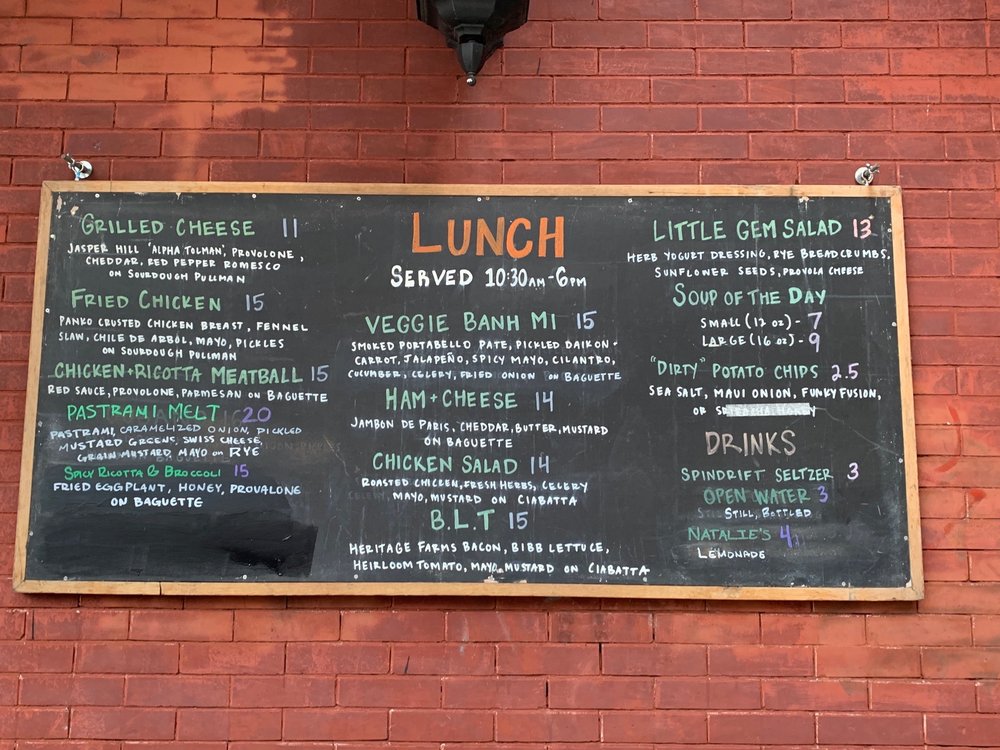 GRILLED CHEESE 11
JASPER HILL 'ALPHA TOLMAN', PROVOLONE,
CHEDDAR, RED PEPPER ROMESCO
ON SOURDOUGH PULLMAN
FRIED CHICKEN 15
PANKO CRUSTED CHICKEN BREAST, FENNEL
SLAW, CHILE DE ARBOL, MAYO, PICKLES
ON SOURDOUGH PULLMAN
CHICKEN + RICOTTA MEATBALL 15
RED SAUCE, PROVOLONE, PARMESAN ON BAGUETTE
PASTRAMI MELT 20
PASTRAMI, CARAMELIZED ONION, PICKLED
MUSTARD GREENS, SWISS CHEESE,
GRAIN MUSTARD, MAYO ON RYE
SPICY RICOTTA & BROCCOLI 15
FRIED EGGPLANT, HONEY, PROVALONE
ON BAGUETTE
LUNCH
SERVED 10:30AM-6PM
VEGGIE BANH MI 15
SMOKED PORTABELLO PATE, PICKLED DAIKON +
CARROT, JALAPEÑO, SPICY MAYO, CILANTRO,
CUCUMBER, CELERY, FRIED ONION ON BAGUETTE
HAM + CHEESE 14
JAMBON DE PARIS, CHEDDAR, BUTTER, MUSTARD
ON BAGUETTE
CHICKEN SALAD 14
ROASTED CHICKEN, FRESH HERBS, CELERY
MAYO, MUSTARD ON CIABATTA
B.L.T 15
HERITAGE FARMS BACON, BIBB LETTUCE,
HEIRLOOM TOMATO, MAYO, MUSTARD ON CIABATTA
LITTLE GEM SALAD 13
HERB YOGURT DRESSING, RYE BREADCRUMBS,
SUNFLOWER SEEDS, PROVOLA CHEESE
SOUP OF THE DAY
SMALL (12 OZ) - 7
LARGE (16 OZ) - 9
"DIRTY" POTATO CHIPS 2.5
SEA SALT, MAUI ONION, FUNKY FUSION,
OR
DRINKS
SPINDRIFT SELTZER 3
OPEN WATER 3
STILL, BOTTLED
NATALIE'S 4
LEMONADE